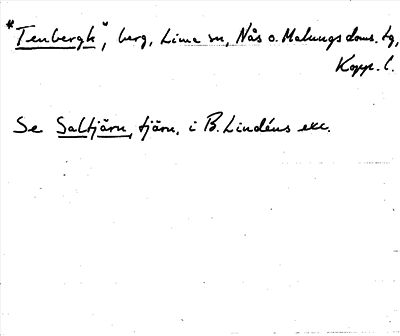 *"Tenbergh", berg, Lima sn, Nås o. Malungs doms. tg,
Kopp. l.
Se Saltjärn, tjärn, i B. Lindéns exc.